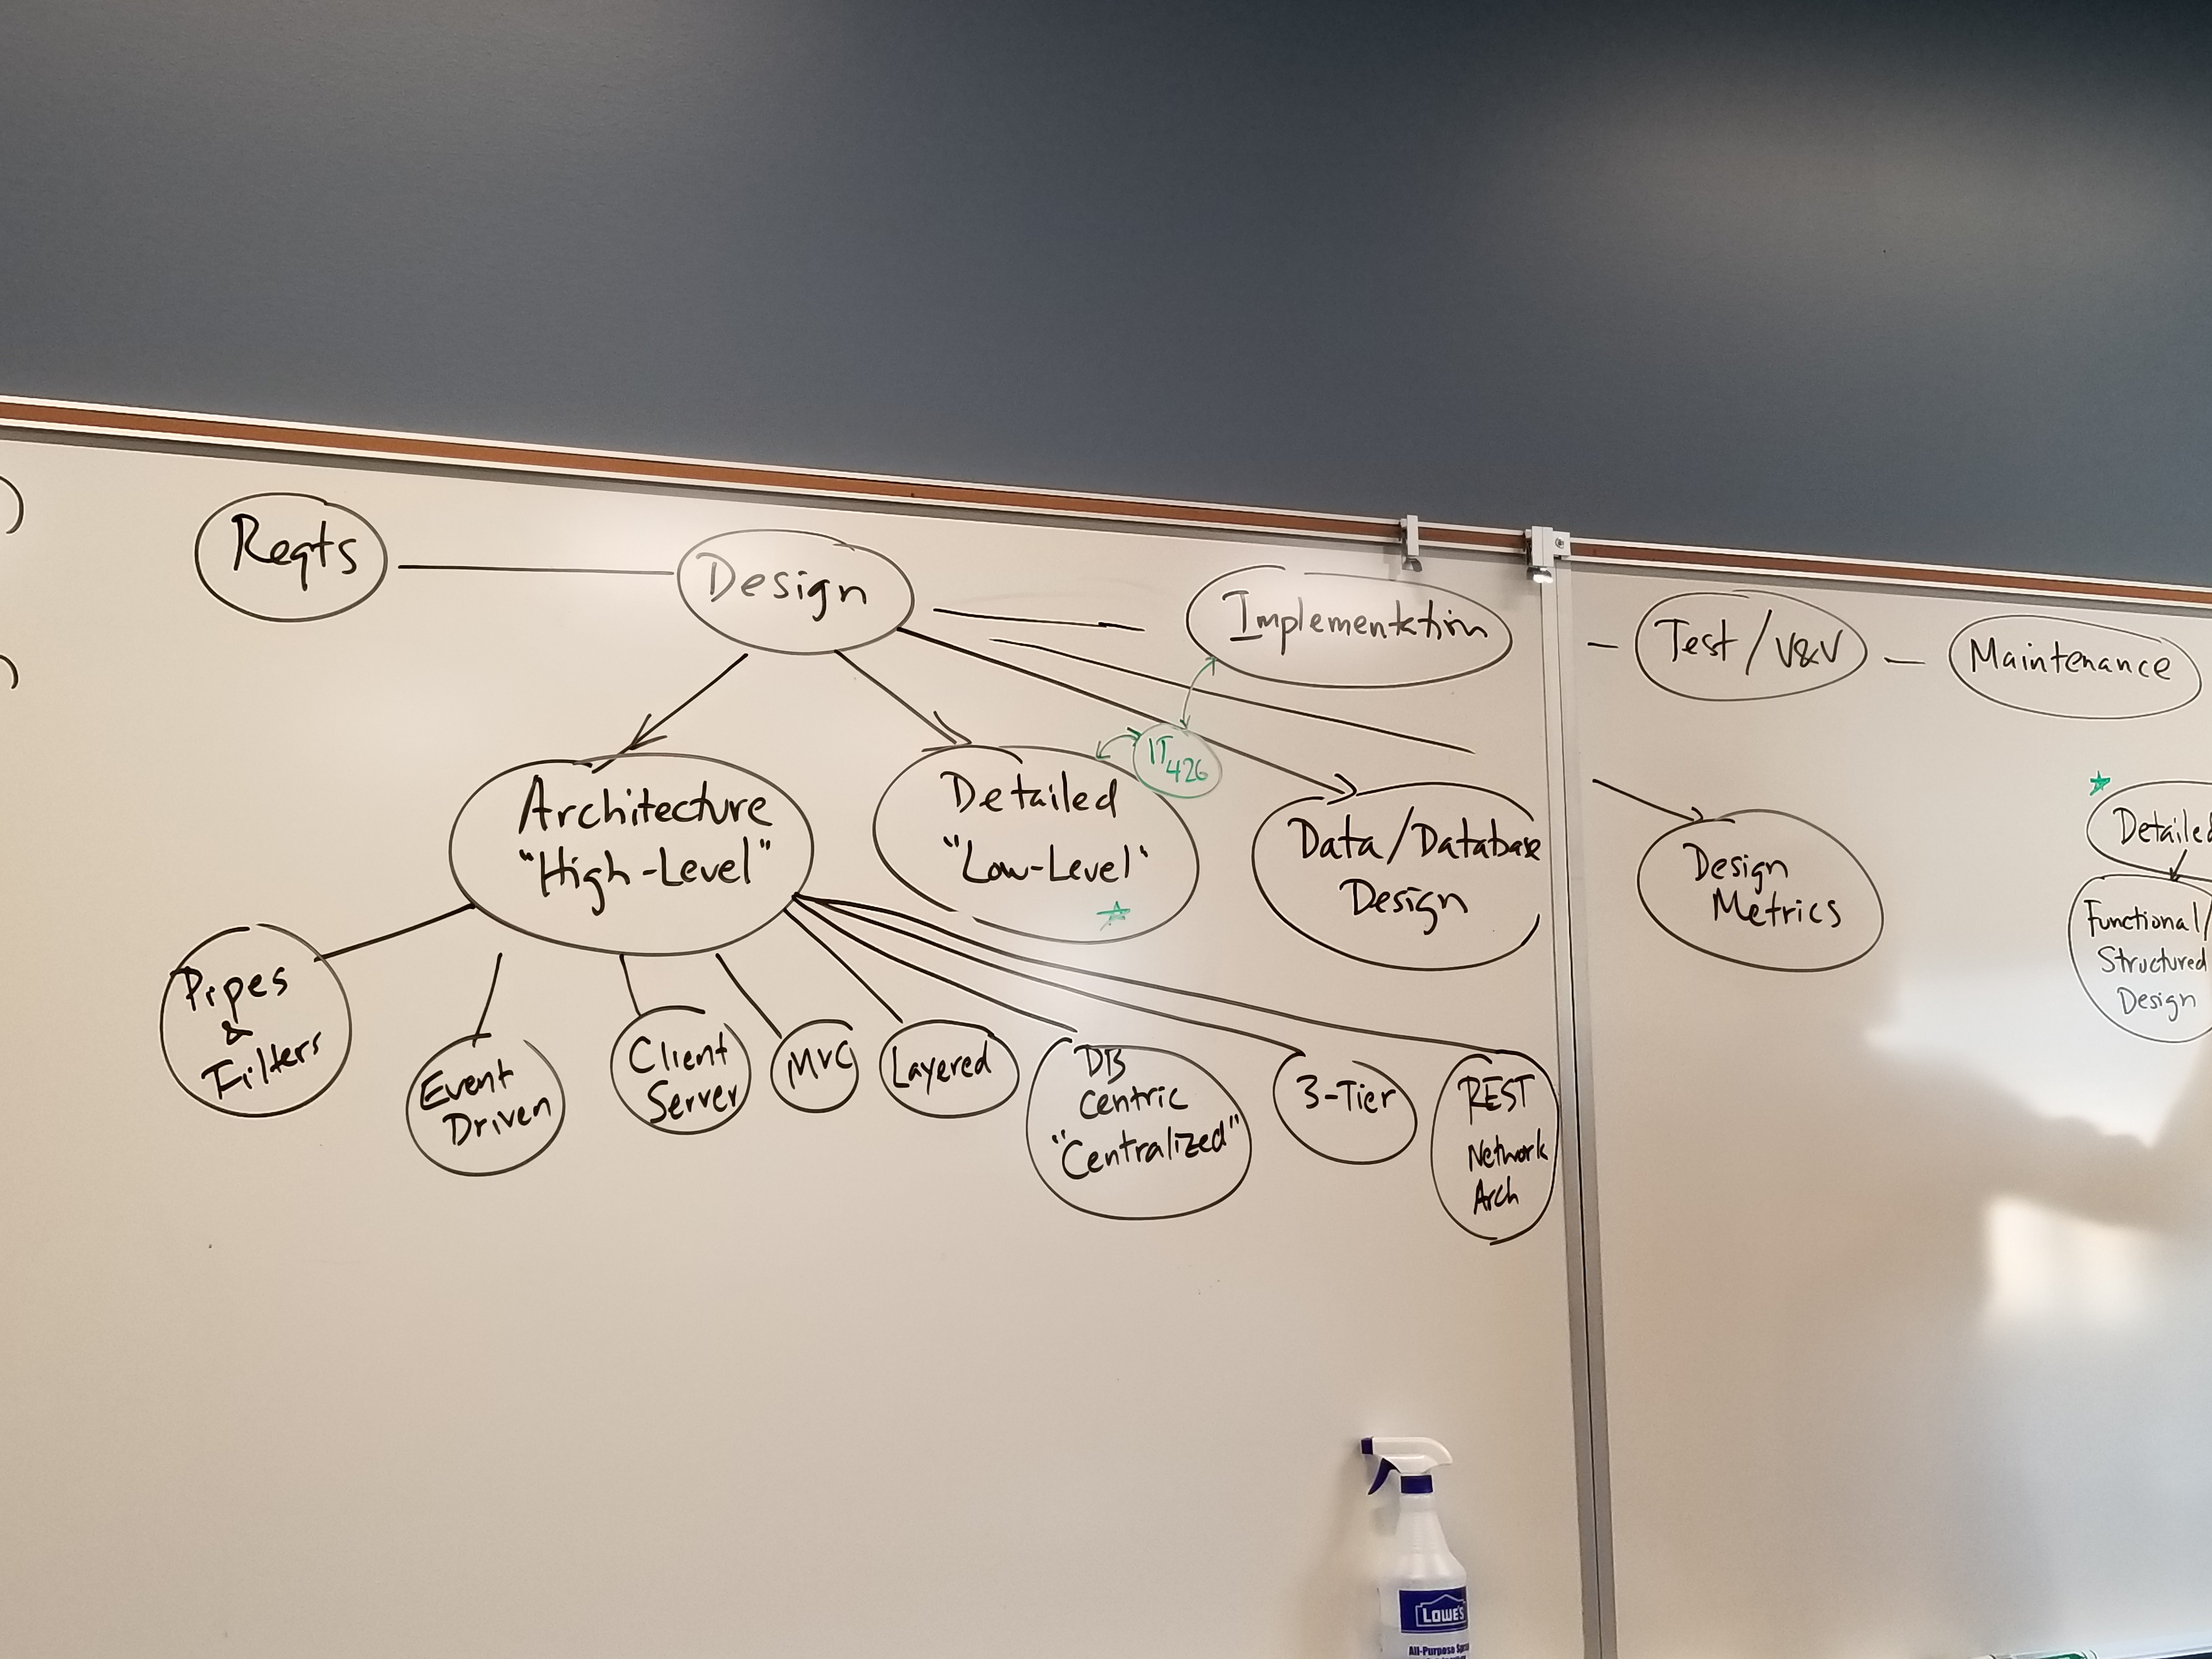 Reqts
Design
Implementation
Test/V&V
Maintenance
IT
426
Architecture
"High-Level"
Detailed
"Low-Level"
Data/Database
Design
Design
Metrics
Detailed
Functional/
Structured
Design
Pipes
&
Filters
Event
Driven
Client
Server
MVC
Layered
DB
Centric
"Centralized"
3-Tier
REST
Network
Arch
LOWE'S
All-Purpose